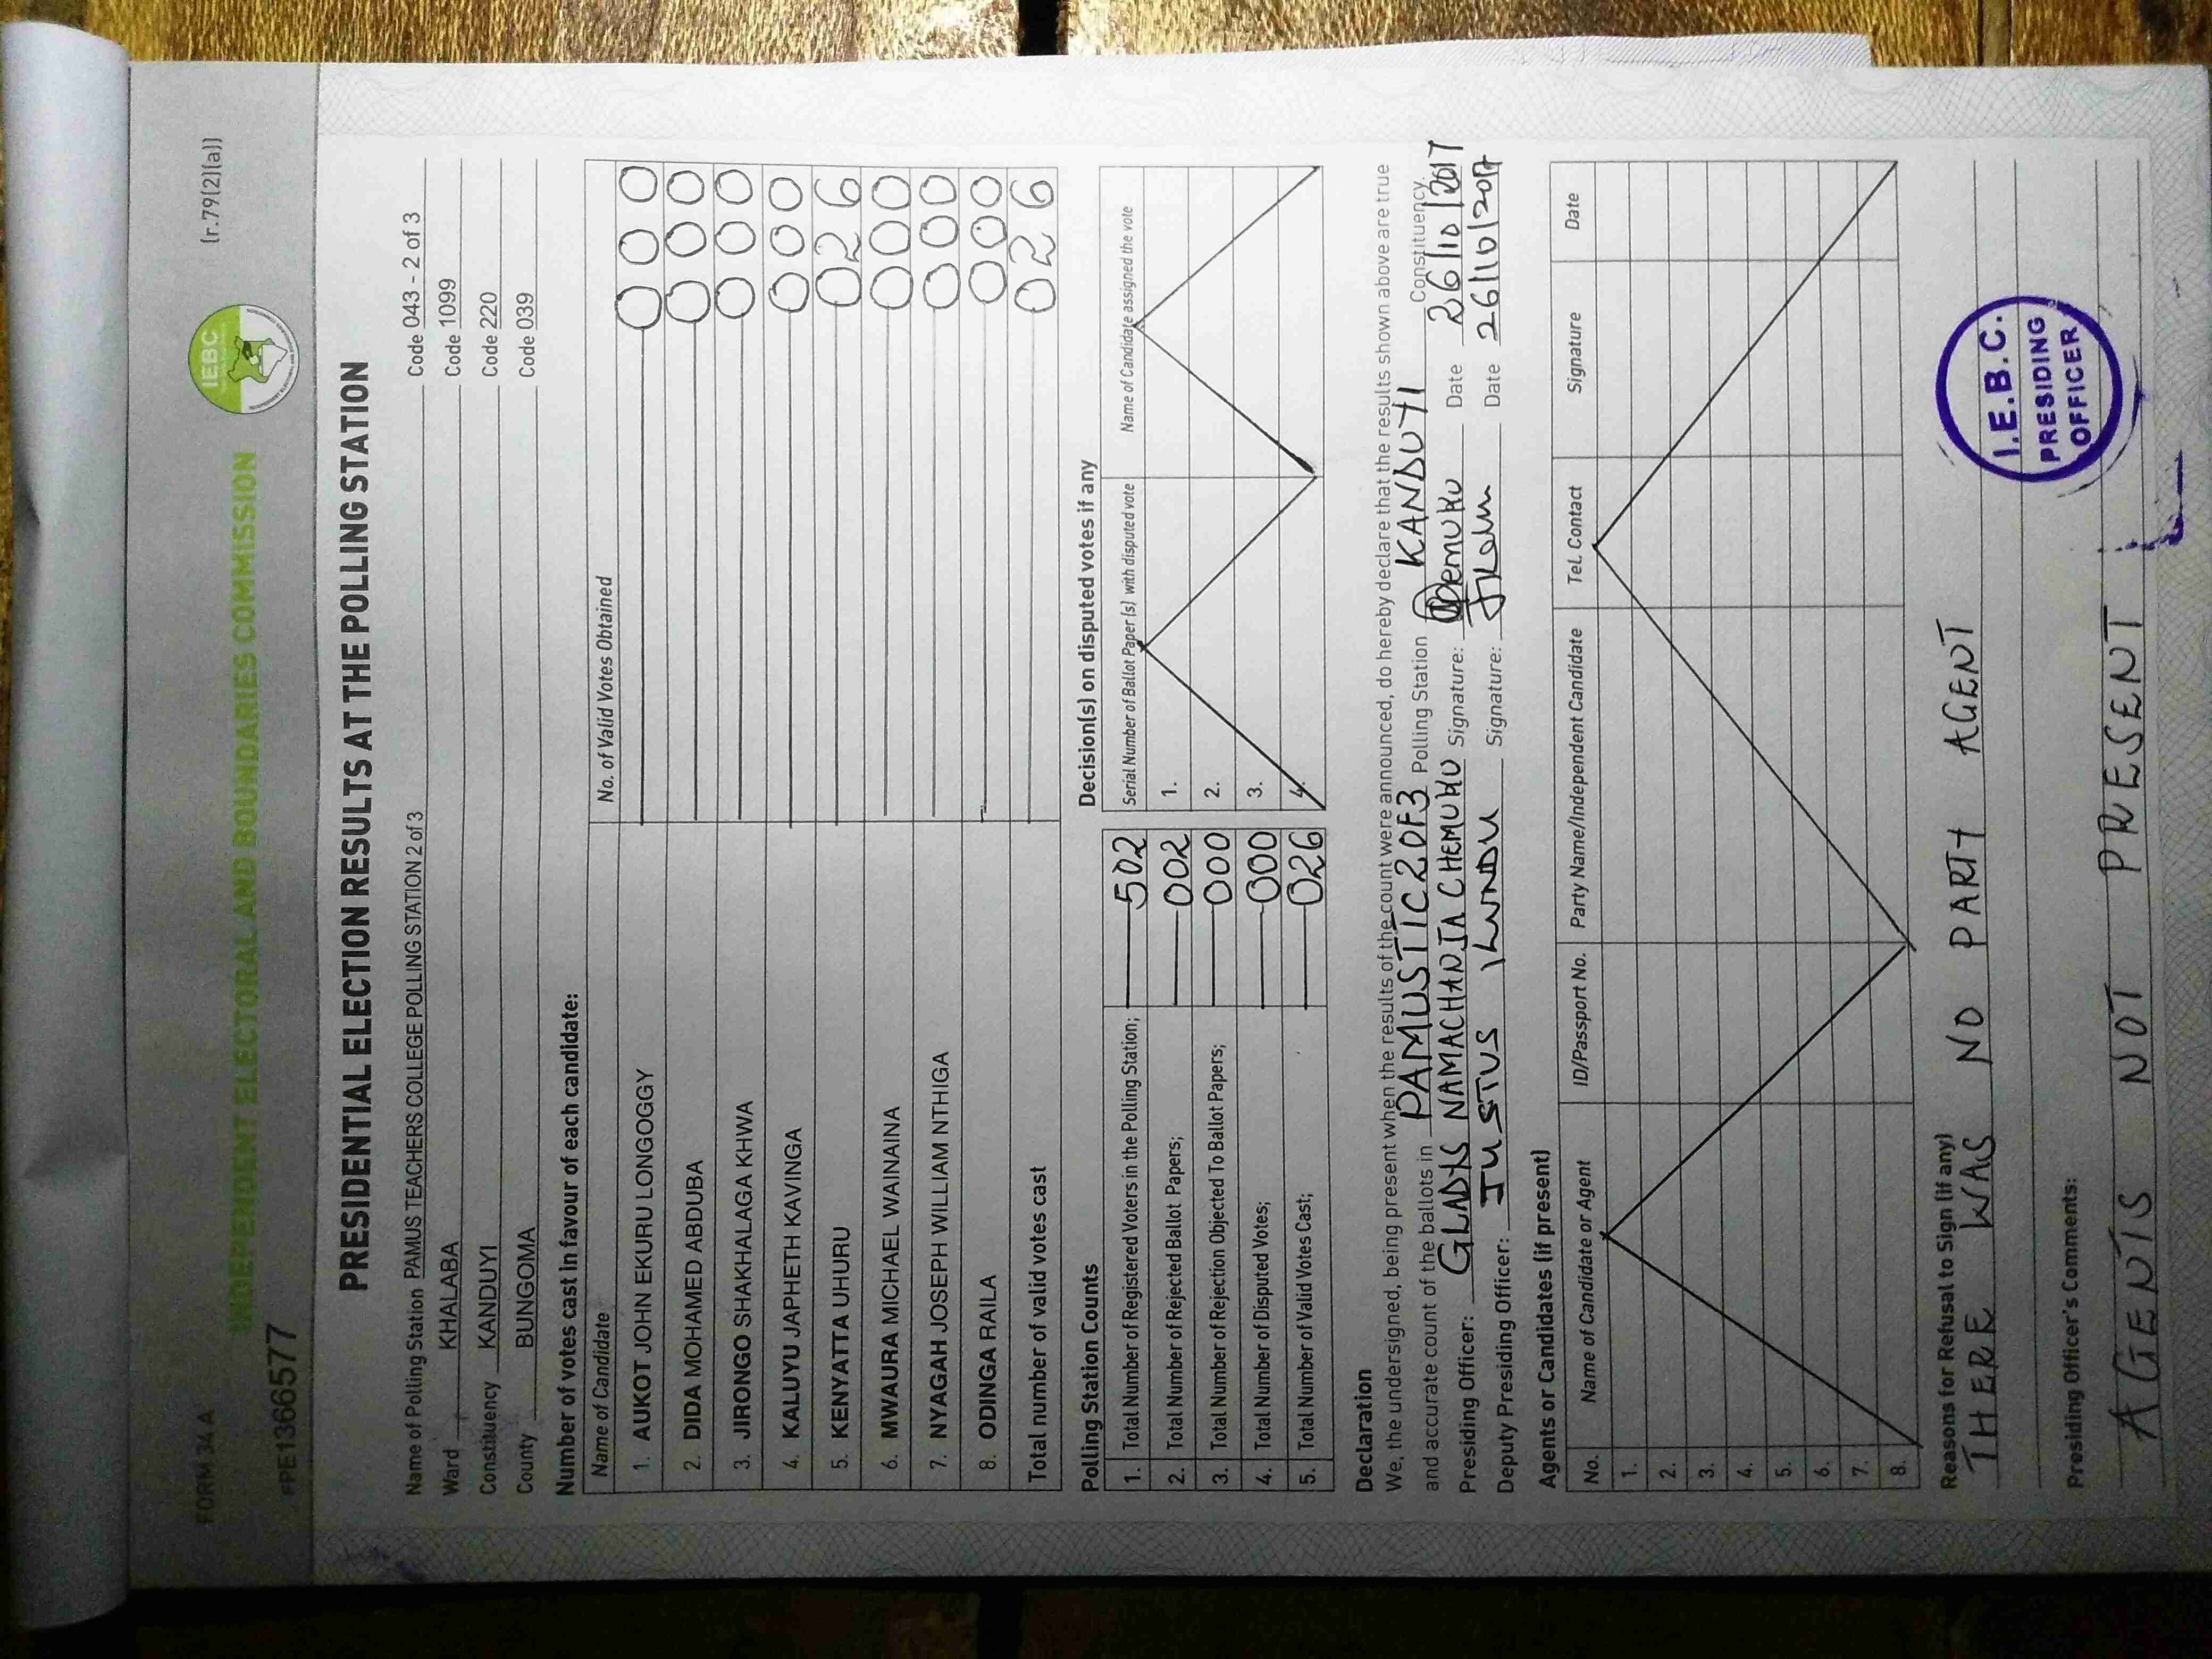 FORM 34A
(r.79(2)(a))
INDEPENDENT ELECTORAL AND BOUNDARIES COMMISSION
IEBC
PE1366577
PRESIDENTIAL ELECTION RESULTS AT THE POLLING STATION
Name of Polling Station PAMUS TEACHERS COLLEGE POLLING STATION 2 of 3 Code 043 - 2 of 3
Ward KHALABA Code 1099
Constituency KANDUYI Code 220
County BUNGOMA Code 039
Number of votes cast in favour of each candidate:
Name of Candidate No. of Valid Votes Obtained
1. AUKOT JOHN EKURU LONGOGGY 000
2. DIDA MOHAMED ABDUBA 000
3. JIRONGO SHAKHALAGA KHWA 000
4. KALUYU JAPHETH KAVINGA 000
5. KENYATTA UHURU 026
6. MWAURA MICHAEL WAINAINA 000
7. NYAGAH JOSEPH WILLIAM NTHIGA 000
8. ODINGA RAILA 000
Total number of valid votes cast 026
Polling Station Counts
1. Total Number of Registered Voters in the Polling Station; 502
2. Total Number of Rejected Ballot Papers; 002
3. Total Number of Rejection Objected To Ballot Papers; 000
4. Total Number of Disputed Votes; 000
5. Total Number of Valid Votes Cast; 026
Decision(s) on disputed votes if any
Serial Number of Ballot Paper (s) with disputed vote Name of Candidate assigned the vote
1.
2.
3.
4.
Declaration
We, the undersigned, being present when the results of the count were announced, do hereby declare that the results shown above are true
and accurate count of the ballots in PAMUSTTC 2 OF 3 Polling Station KANDUYI Constituency.
Presiding Officer: GLADYS NAMACHANJA CHEMUKU Signature: Date 26/10/2017
Deputy Presiding Officer: JUSTUS Signature: Date 26/10/2017
Agents or Candidates (if present)
No. Name of Candidate or Agent ID/Passport No. Party Name/Independent Candidate Tel. Contact Signature Date
1.
2.
3.
4.
5.
6.
7.
8.
Reasons for Refusal to Sign (if any)
THERE WAS NO PARTY AGENT
I.E.B.C.
PRESIDING
OFFICER
Presiding Officer's Comments:
AGENTS NOT PRESENT